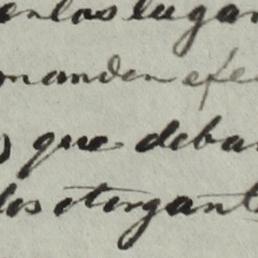 enlos lugar
manden efe
que deba
los otorgant